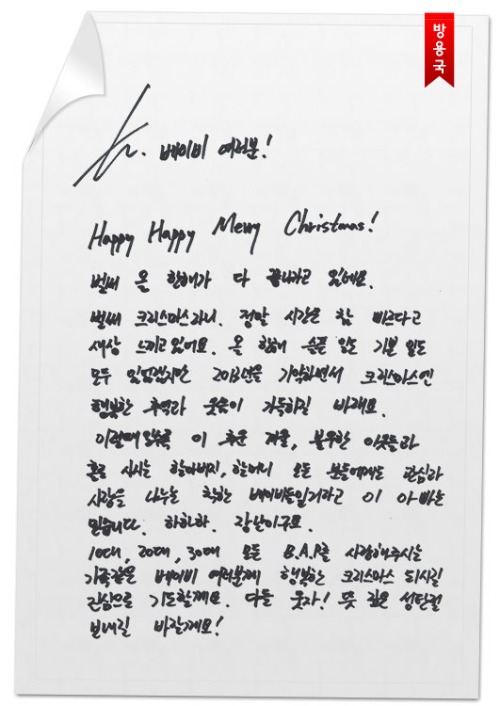 방용국
베이비 여러분!
Happy Happy Merry Christmas!
벌써 올 한해가 다 끝나가고 있네요.
벌써 크리스마스라니. 정말 시간은 참 빠르다고
새삼 느끼고 있어요. 올 한해 슬픈 일도 기쁜 일도
모두 있었겠지만 2013년을 기억하면서 크리스마스엔
행복한 추억과 웃음이 가득하길 바래요.
이럴때일수록 이 추운 겨울, 불우한 이웃들과
홀로 사시는 할아버지, 할머니 모든 분들에게도 관심과
사랑을 나누는 착한 베이비들일거라고 이 아빠는
믿습니다. 하하하. 장난이구요.
10대, 20대, 30대 모든 B.A.P를 사랑해주시는
가족같은 베이비 여러분께 행복한 크리스마스 되시길
진심으로 기도할께요. 다들 웃자! 뜻 깊은 성탄절
보내길 바랄께요!